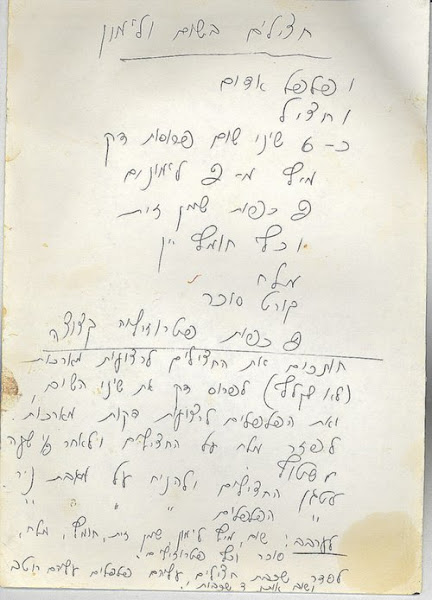 חצילים בשום ולימון
1 פלפל אדום
1 חציל
כ-6 שיני שום פרוסות דק
מיץ מ- לימונים
כפות שמן זית
1 כף חומץ יין
מלח
קורט סוכר
כפות פטרוזיליה קצוצה
חותכים את החצילים לרצועות מארכות
(לא לקלף) לפרוס דק את שיני השום,
ואת הפלפלים לרצועות דקות מארכות.
לפזר מלח על החצילים ולאחר שעה
לשטוף.
לטגן החצילים ולהניח על מגבת נייר.
" הפלפלים " " " "
לערבב: שום, מיץ לימון, שמן זית, חומץ, מלח,
סוכר וכף פטרוזיליה.
לסדר שכבת חצילים, עליהם פלפלים עליהם רוטב
ושוב שכבות.